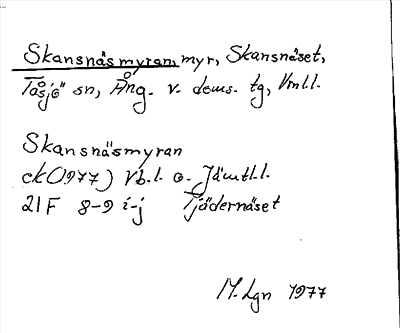 Skansnäsmyran, myr, Skansnäset,
Tåsjö sn, Ång. v. doms. tg, Vmll.
Skansnäsmyran
ek (1977) Vb.l. o. Jämtl.l.
21F 8-9 i-j Tjädernäset
M. Lgn 1977